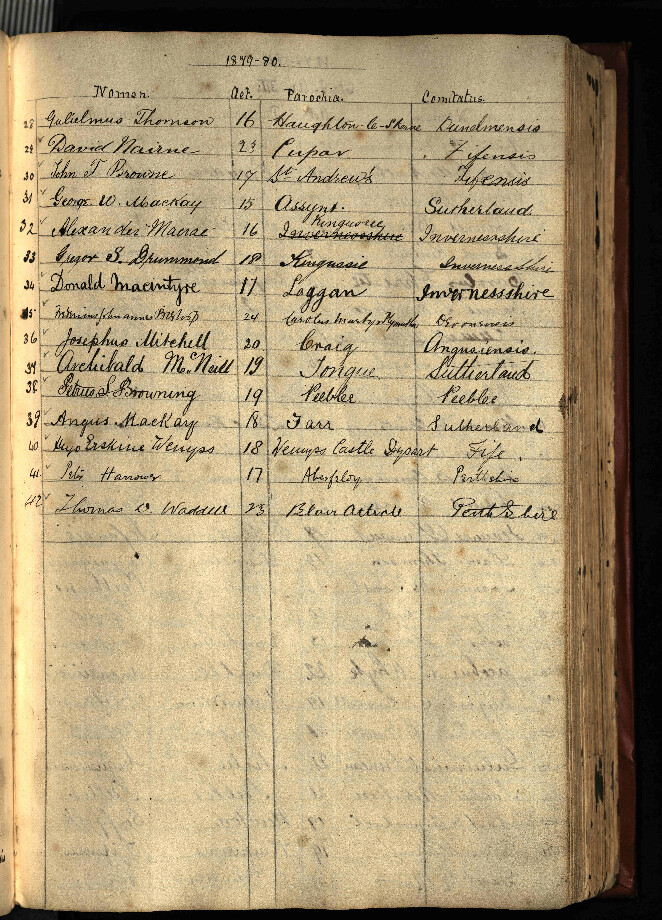 1879-80.
Nomen. Aet. Parochia. Comitatus.
28 Gulielmus Thomson 16 Haughton-le-Skerne Dunelmensis
29 David Nairne 23 Cupar Fifensis
30 John T Browne 17 St Andrew's Fifensis
31 George W. Mackay 15 Assynt. Sutherland
Kingussie
32 Alexander Macrae 16 Invernessshire Invernessshire
33 S. Drummond 18 Kingussie Invernessshire
34 Donald Macintyre 17 Laggan Invernessshire
35 Johannes 24 Carolus Martyr Plymouth Devoniensis
36 Josephus Mitchell 20 Craig Angusiensis.
37 Archibald McNeill 19 Tongue Sutherland
38 Petrus S. Browning 19 Peebles Peebles
39 Angus Mackay 18 Farr Sutherland
40 Hugo Erskine Wemyss 18 Wemyss Castle Dysart Fife.
41 Peter Harrower 17 Aberfoyle Perthshire
42 Thomas W. Waddell 23 Blair Atholl Perthshire